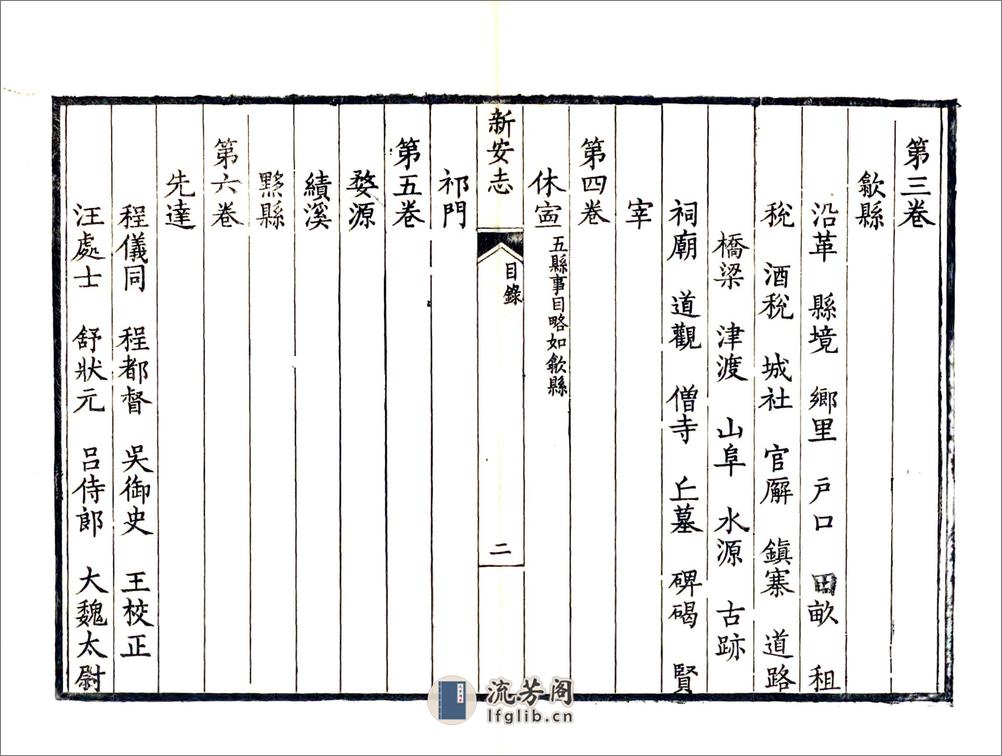 第三卷
歙縣
沿革 縣境 鄉里 戸口 田畝 租
稅 酒稅 城社 官廨 鎮寨 道路
橋梁 津渡 山阜 水源 古跡
祠廟 道觀 僧寺 丘墓 碑碣 賢
宰
第四卷
休寧 五縣事目略如歙縣
新安志 目錄 二
祁門
第五卷
婺源
績溪
黟縣
第六卷
先達
程儀同 程都督 吳御史 王校正
汪處士 舒狀元 呂侍郎 大魏太尉
流芳阁
lfglib.cn